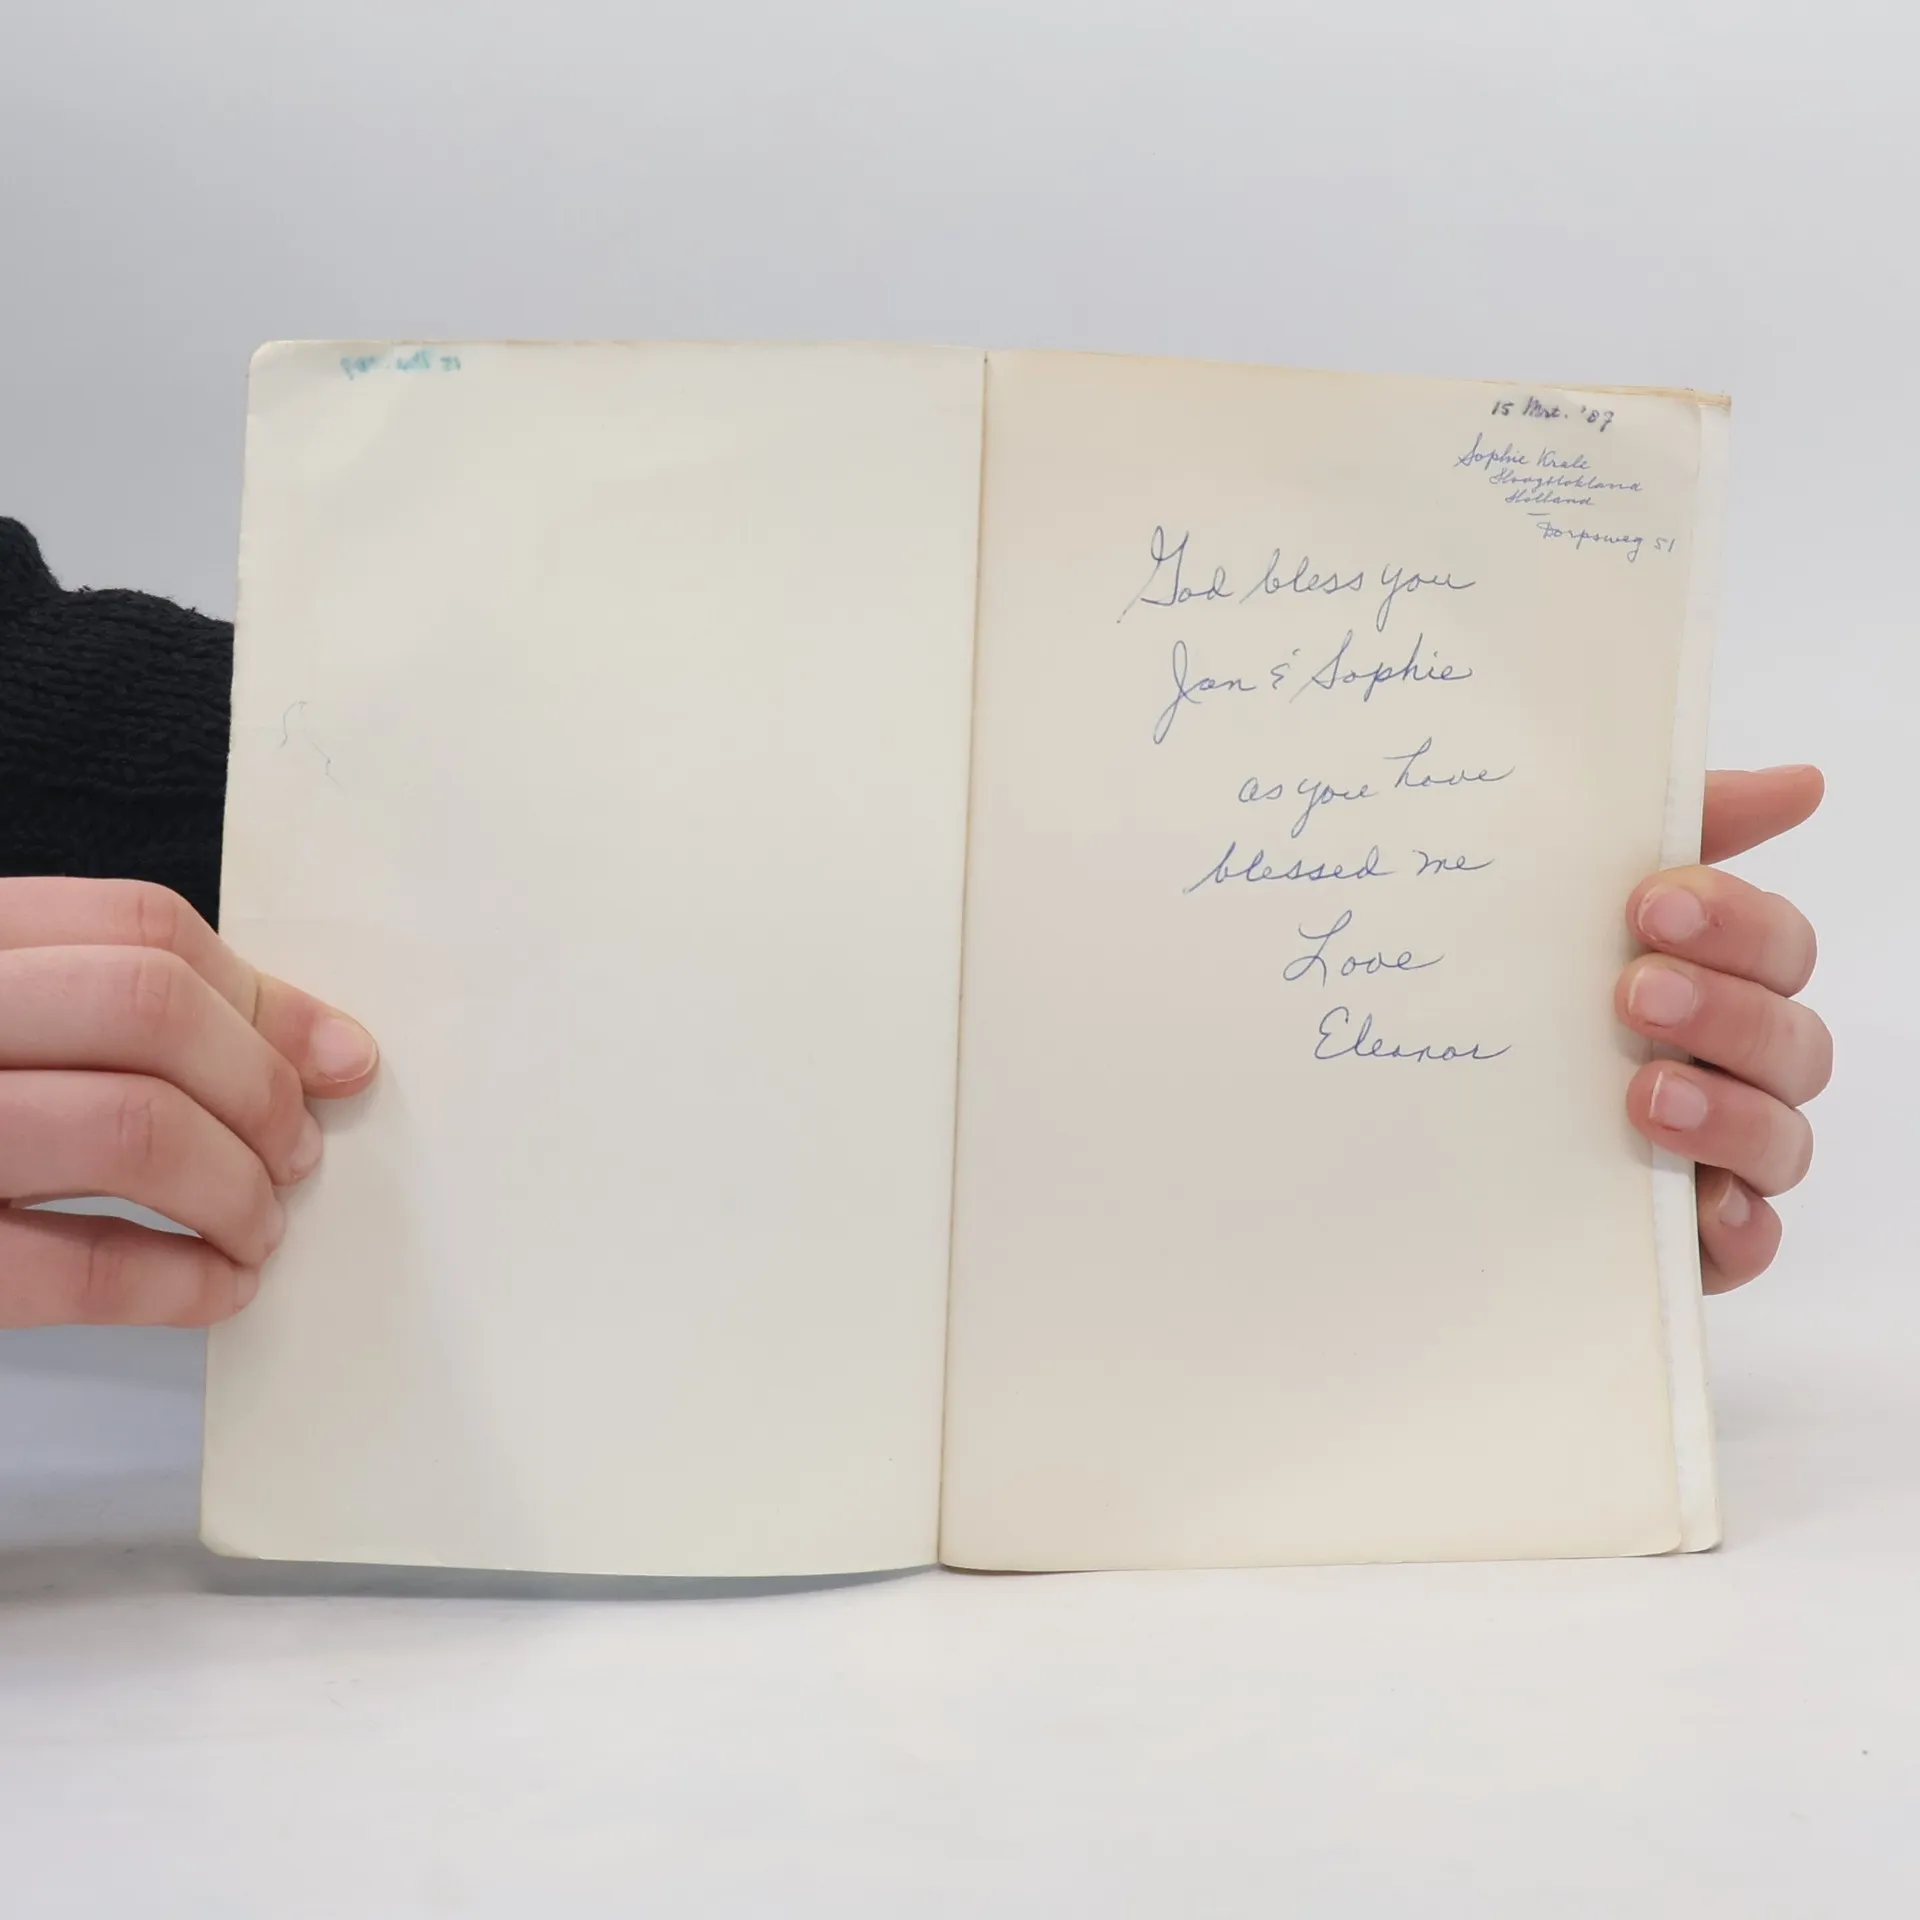 15 Mrt. '87
Sophie Krale
Hoogblokland
Holland
Dorpsweg 51
God bless you
Jan & Sophie
as you have
blessed me
Love
Eleanor